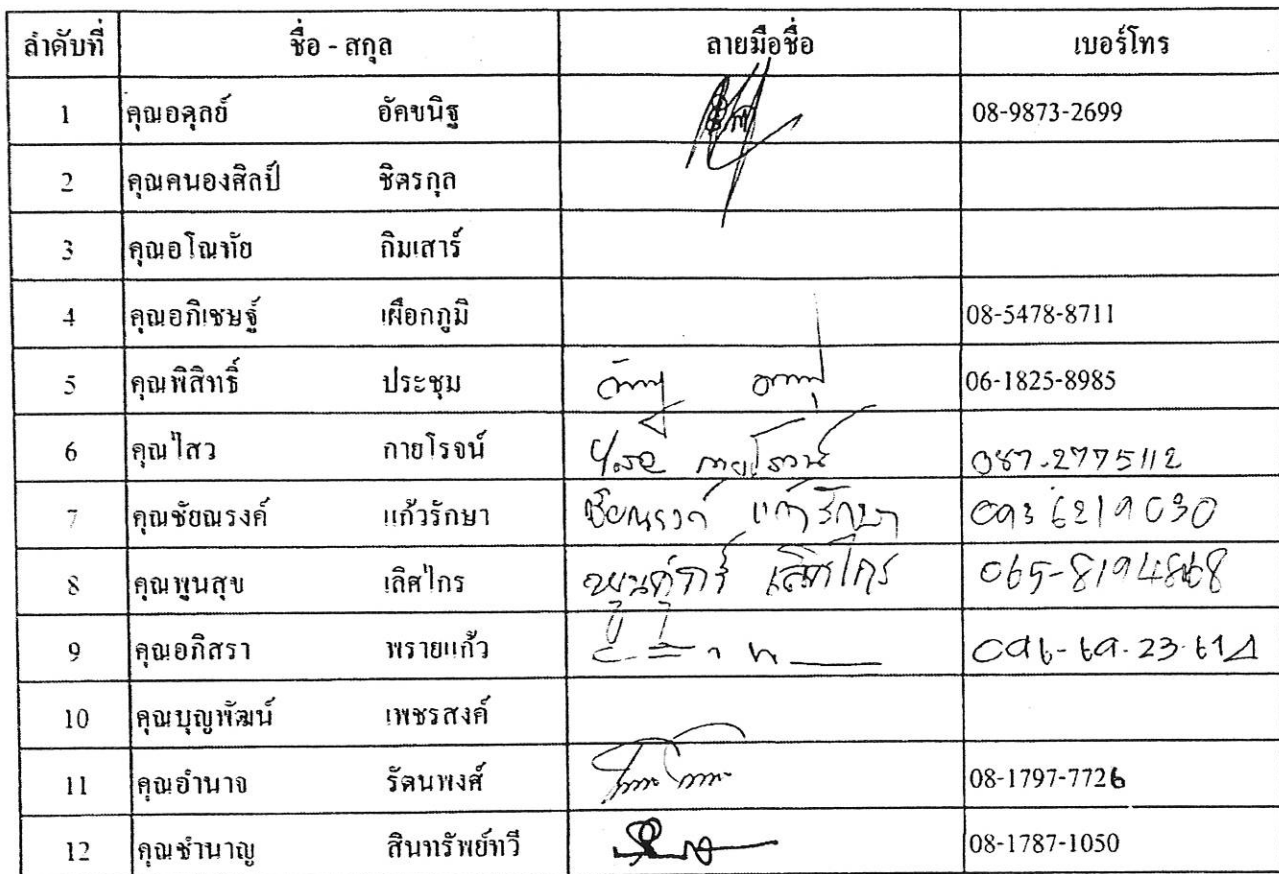 ลำดับที่ ชื่อ - สกุล ลายมือชื่อ เบอร์โทร
1 คุณอดุลย์ อัคขนิฐ 08-9873-2699
2 คุณคนองศิลป์ ชิตรกุล
3 คุณอโณทัย กิมเสาร์
4 คุณอภิเชษฐ์ เผือกภูมิ 08-5478-8711
5 คุณพิสิทธิ์ ประชุม 06-1825-8985
6 คุณไสว กายโรจน์ ไสว กายโรจน์ 087-2775112
7 คุณชัยณรงค์ แก้วรักษา ชัยณรงค์ แก้วรักษา 093 6219030
8 คุณพูนสุข เลิศไกร เลิศไกร 065-8194868
9 คุณอภิสรา พรายแก้ว
10 คุณบุญพัฒน์ เพชรสงค์
11 คุณอำนาจ รัตนพงศ์ 08-1797-7726
12 คุณชำนาญ สินทรัพย์ทวี 08-1787-1050